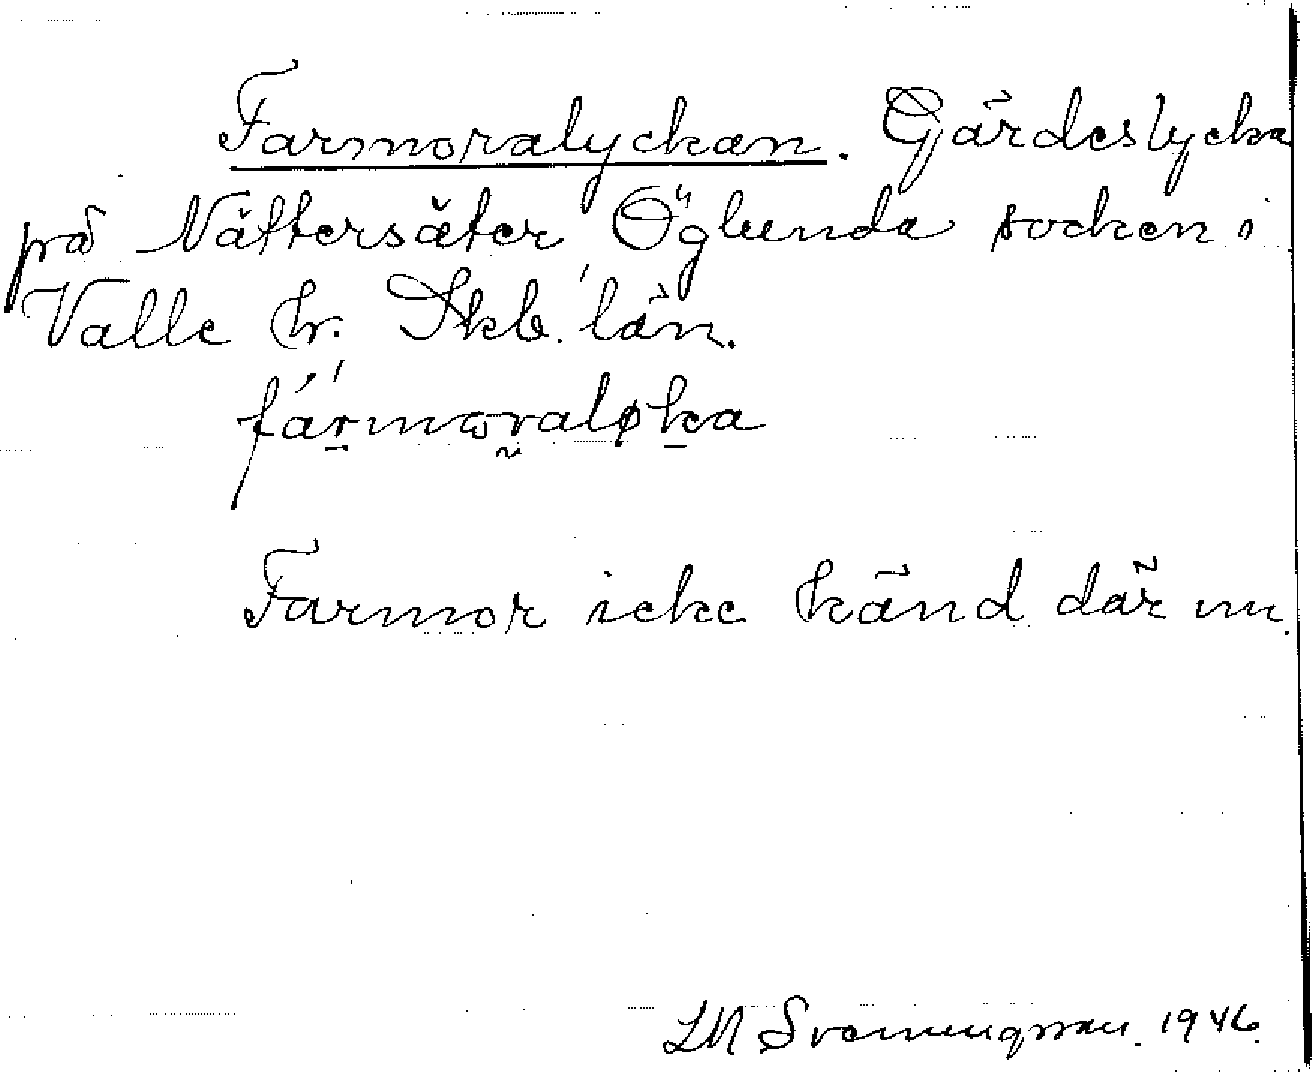 Farmoralyckan. Gärdeslycka
på Nättersäter Öglunda socken i
Valle hr. Skb. län.
Farmor icke känd där nu.
LM Svenungsson. 1946.